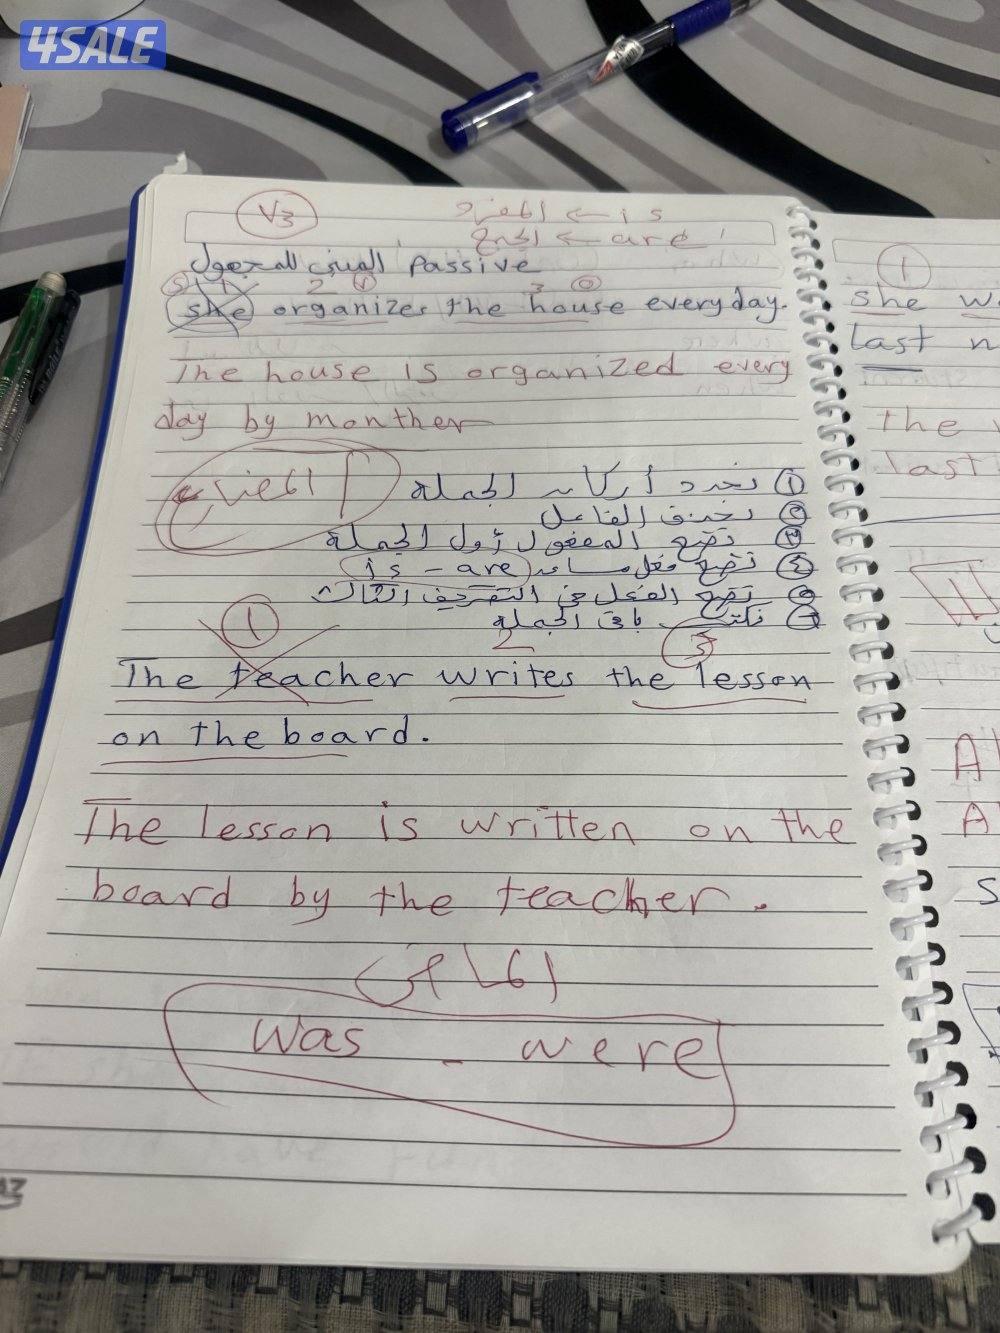 4SALE
V3
المفرد ← is
الجمع ← are
المبنى للمجهول Passive
S 1 2 V 3 O
she organizes the house everyday.
The house is organized every
day by monther
المضارع
① نحدد أركان الجملة
② نحذف الفاعل
③ نضع المفعول أول الجملة
④ نضع فعل مساعد is - are
⑤ نضع الفعل في التصريف الثالث
⑥ نكتب باقى الجملة
1 2 3
The teacher writes the lesson
on the board.
The lesson is written on the
board by the teacher.
الماضى
was - were
1
she w
last n
the
last
A
A
S